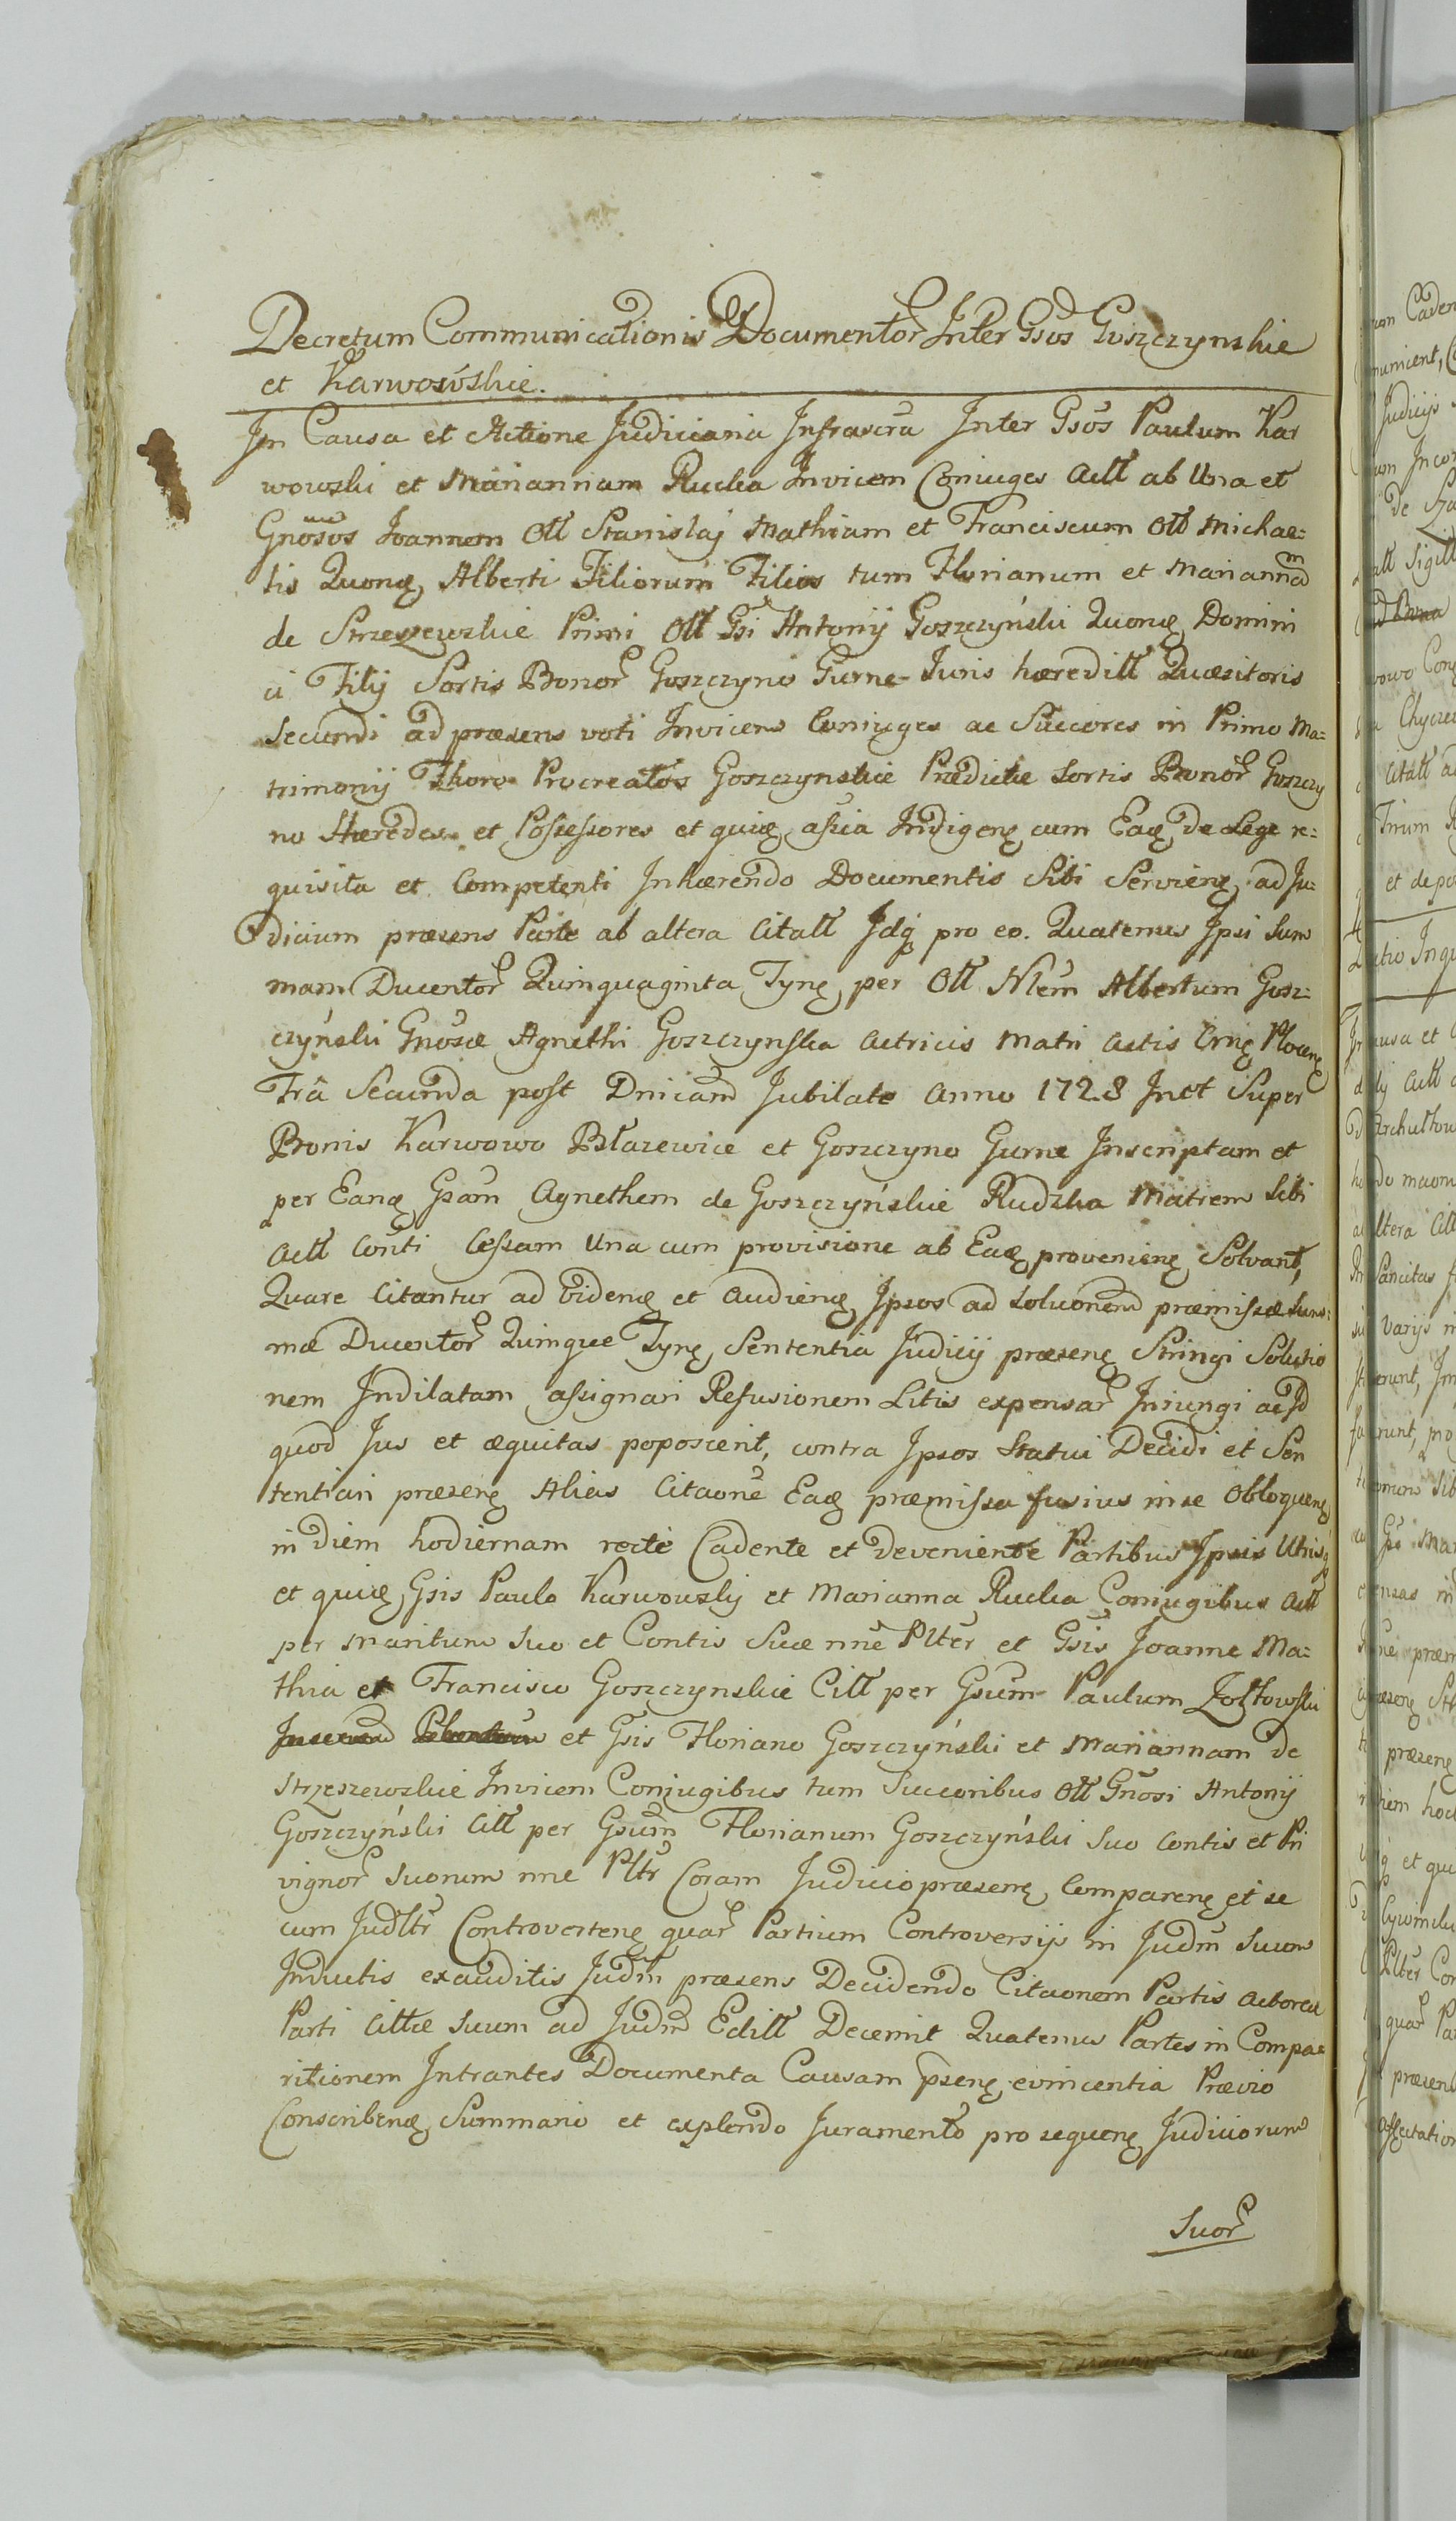 Decretum Communicationis Documentor Inter Gsos Goszczynskie
et Karwososkie.
In Causa et Actione Judiciaria Infrascra Inter Gsos Paulum Kar
wowski et Mariannam Rucka Invicem Coniuges Actt ab Una et
Gnosos Joannem Ott Stanislaj Mathiam et Franciscum Ott Michae=
lis Quonę Alberti Filiorum Filios tum Florianum et Mariannam
de Strzeszewskie Primi Ott Gsi Antonij Goszczyński Quonę Domini
ci Filij Sortis Bonor Goszczyno Gurne Juris hæreditt Quæsitoris
Secundi ad præsens voti Invicem Coniuges ac Succores in Primo Ma=
trimonij Thoro Procreatos Goszczynskie Prædictæ Sortis Bonor Goszczy
no Hæredes et Possessores et quię assia Indigenę cum Eaę de Lege re=
quisita et Competenti Inhærendo Documentis Sibi Servienę ad Ju=
dicium præsens Parte ab altera Citatt Idq pro eo. Quatenus Ipsi Sum
mam Ducentor Quinquaginta Tynę per Ott Nlem Albertum Gosz=
czyński Gnosæ Agnethi Goszczynska Actricis Matri Actis Crnę Plocenę
Fra Secunda post Dnicam Jubilate Anno 1728 Inct Super
Bonis Karwowo Błazewice et Goszczyno Gurne Inscriptam et
per Eanę Gsam Agnethem de Goszczyńskie Rudzka Matrem Sibi
Actt Conti Cessam Una cum provisione ab Eaę provenienę Solvant,
Quare Citantur ad Videnę et Audienę Ipsos ad Soluonem præmissæ Sum=
mæ Ducentor Quinque Tynę Sententia Judicij præsenę Stringi Solutio
nem Indilatam assignari Refusionem Litis expensar Iniungi ac Id
quod Jus et æquitas poposcerit, contra Ipsos Statui Decidi et Sen
tentiari præsenę Alias Citaone Eaę præmissa fusius in se Obloquenę
in diem hodiernam recte Cadente et deveniente Partibus Ipsis Utrisq
et quię Gsis Paulo Karwowskj et Marianna Rucka Coniugibus Actt
per Maritum Suo et Contis Suæ nne Plter et Gsis Joanne Ma=
thia et Francisco Goszczynskie Citt per Gsum Paulum Zołtowski
et Gsis Floriano Goszczyński et Mariannam de
Strzeszewskie Invicem Coniugibus tum Succoribus Ott Gnosi Antonij
Goszczyński Citt per Gsum Florianum Goszczyński Suo Contis et Pri
vignor Suorum nne Pltr Coram Judicio præsenę Comparenę et se
cum Judltr Controvertenę quar Partium Controversijs in Judm Suum
Inductis exauditis Judm præsens Decidendo Citaonem Partis Actoreæ
Parti Cittæ Suum ad Judm Editt Decernit Quatenus Partes in Compa=
ritionem Intrantes Documenta Causam psenę evincentia Prævio
Conscribenę Summario et explendo Juramento pro sequenę Judiciorum
Suor